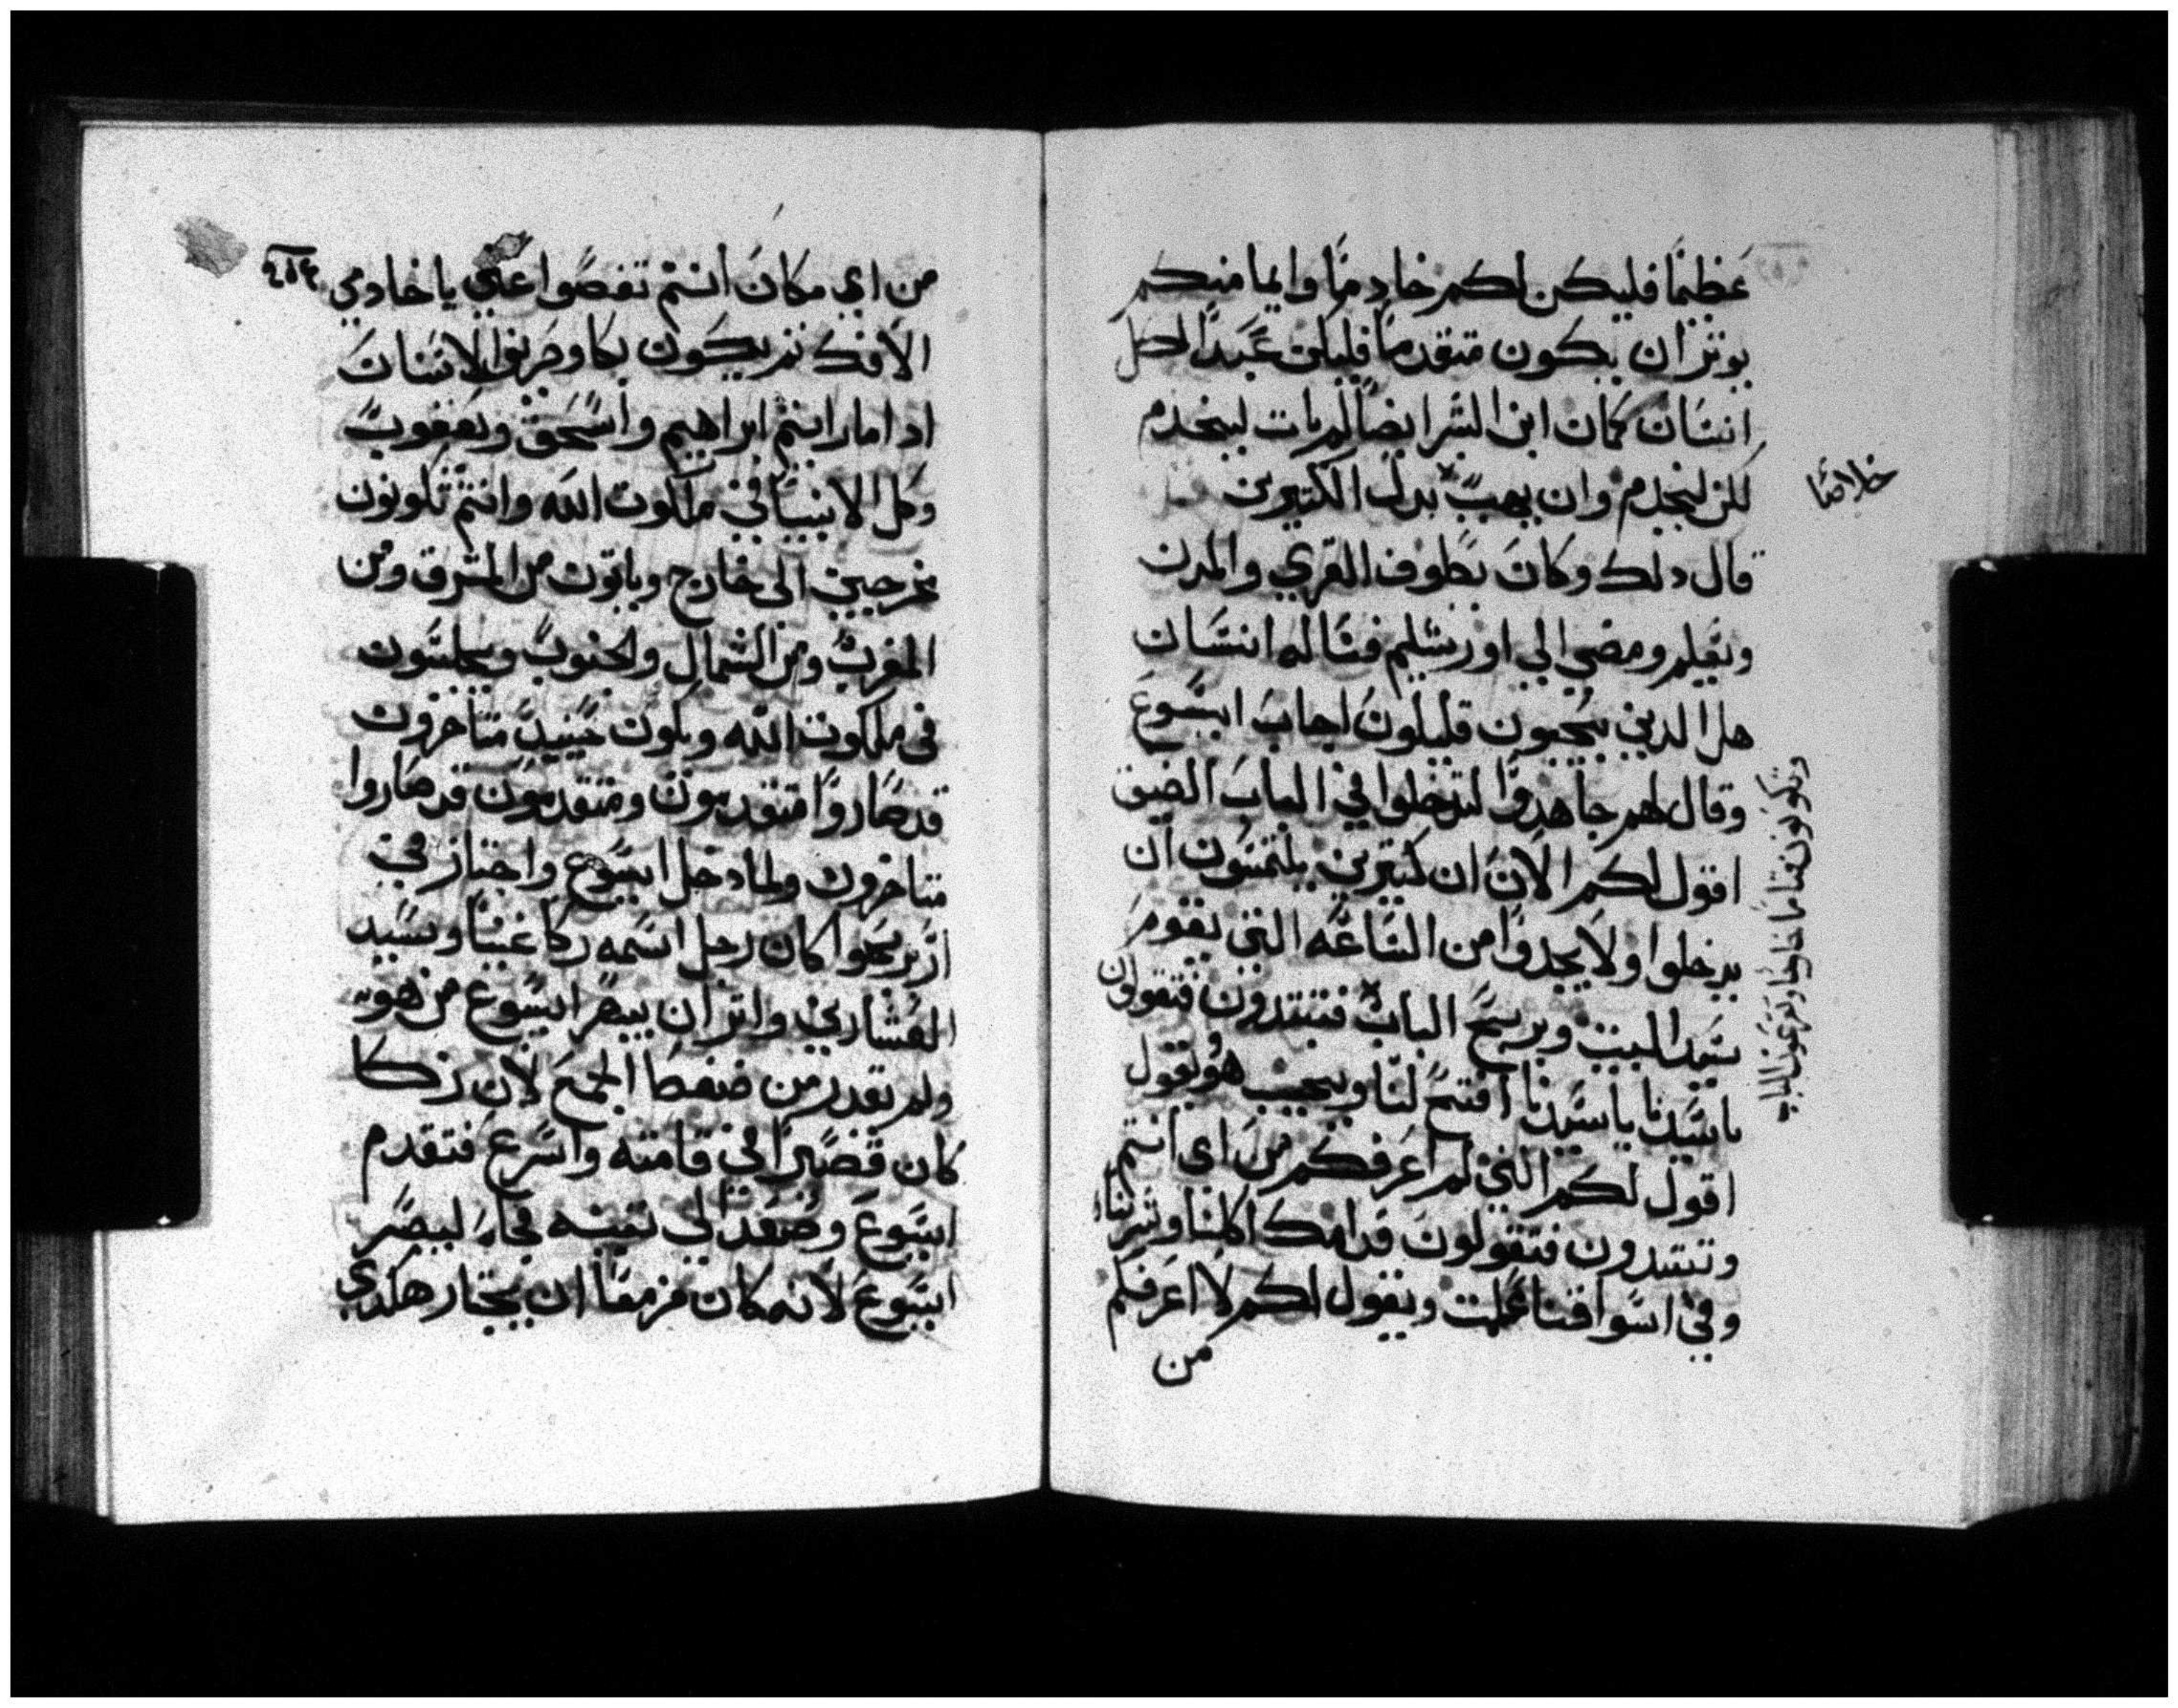 عظيمًا فليكن لكم خادمًا وايما منكم
يوثر ان يكون متقدمًا فليكن عبدًا لكل
انسان كمان ابن البشر ايضًا لم يات ليخدم
لكن ليخدم وان يهب بدل الكتيرين
خلاصًا
قال دلك وكان يطوف القري والمدن
ويعلم ومضي الي اورشليم فساله انسان
هل الدين يحيون قليلون اجاب ايسوع
وقال لهم جاهدوا لتدخلوا في الباب الضيق
اقول لكم الان ان كتيرين يلتمسون ان
يدخلوا ولا يجدوا من الساعه التي يقوم
سيد البيت ويرسح الباب فتبتدون فتقولون
وتكونون قيامًا خارجًا وتقرعون الباب
ياسيدنا ياسيدنا افتح لنا ويجيب هو يقول
اقول لكم انني لم اعرفكم من اي انتم
وتبتدون فتقولون قدامك اكلنا وشربنا
وفي اسواقنا علمت ويقول لكم لا اعرفكم
من
٤٥٣
من اي مكان انتم تفصوا عني يا خادمي
الافك ثم يكون بكا وحريق الاسنان
ادا ما رايتم ابراهيم واسحق ويعقوب
وكل الانبيا في ملكوت الله وانتم تكونون
مخرجين الي خارج وياتون من المشرق ومن
المغرب ومن الشمال والجنوب ويجلسون
في ملكوت الله ويكون حينيد متاخرون
قد صاروا متقدمون ومتقدمون قد صاروا
متاخرون ولما دخل ايسوع واجتاز في
ازيريحوا كان رجل اسمه زكا غنيًا وسيد
العشارين واثر ان يبصر ايسوع من هو
ولم يقدر من ضغطة الجمع لان زكا
كان قصيرًا في قامته واسرع فتقدم
ايسوع وصعد الي تينه فجاه ليبصر
ايسوع لانه كان مزمعًا ان يجتاز هكدي